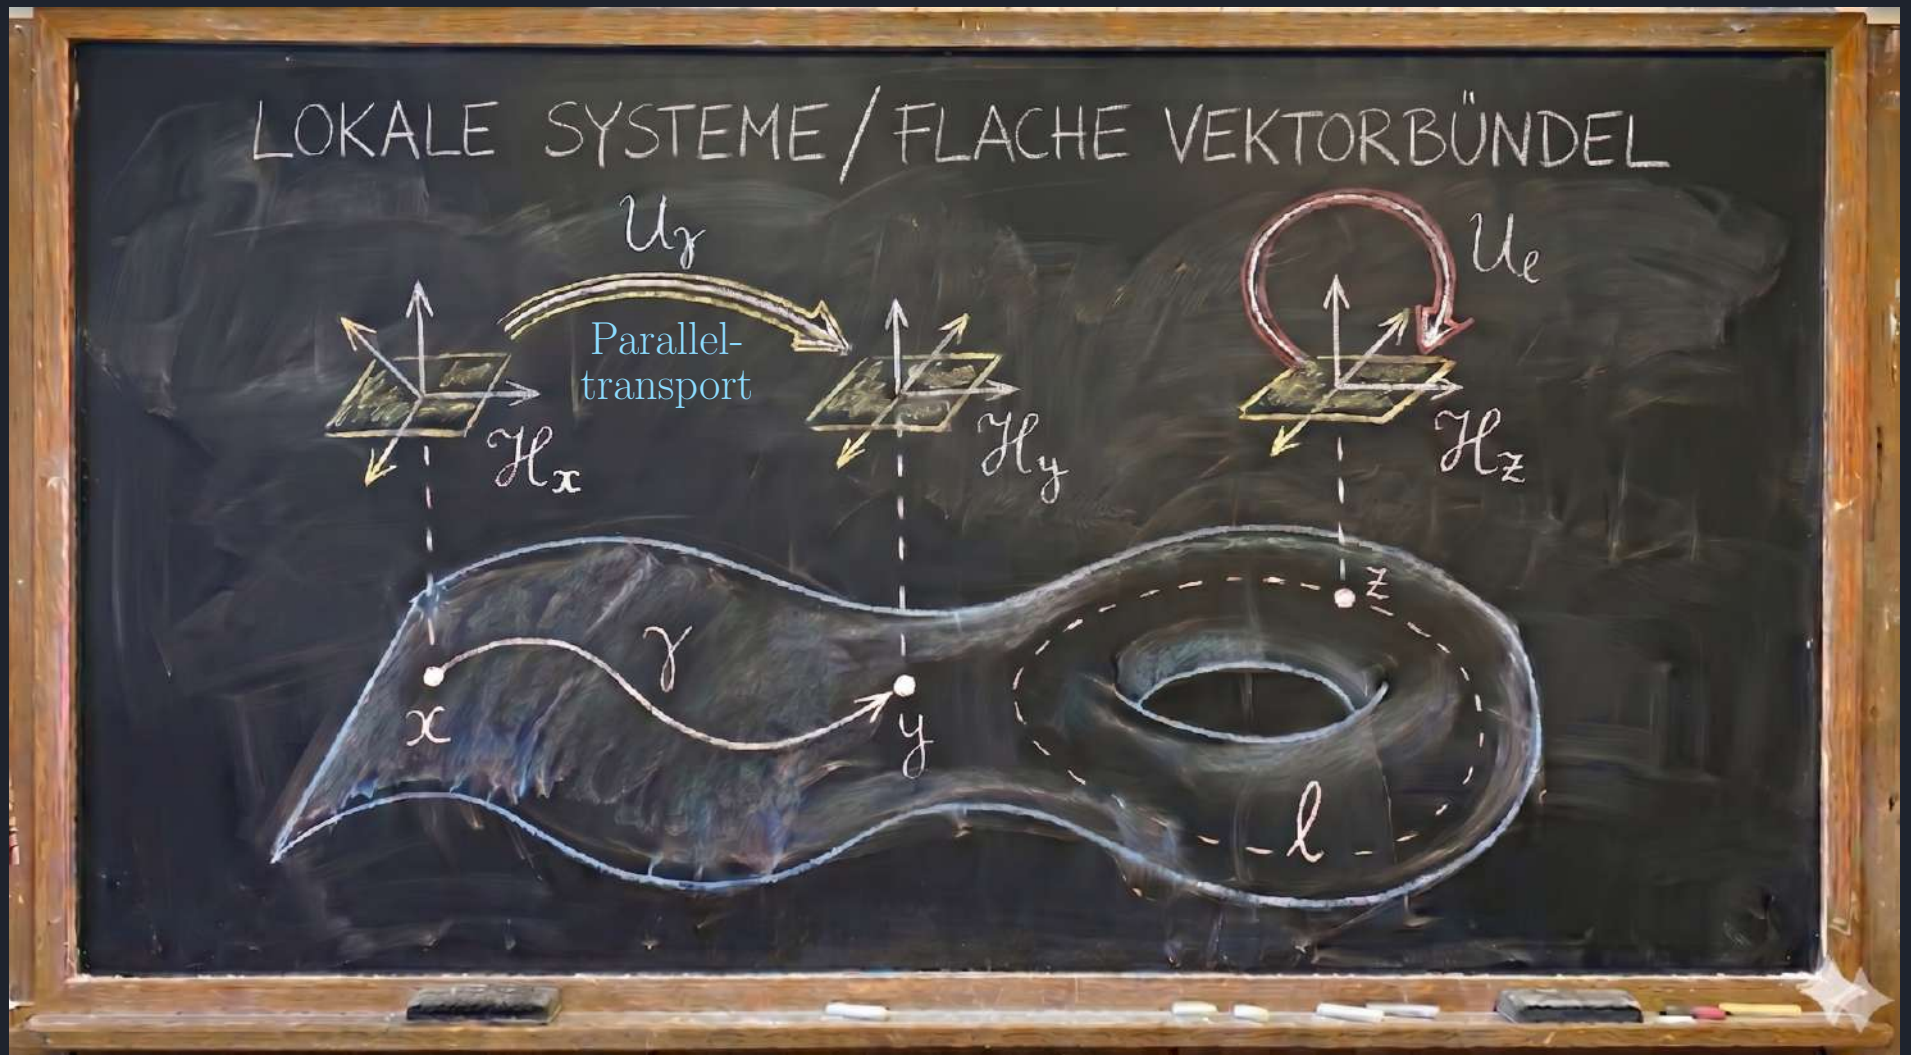 LOKALE SYSTEME/FLACHE VEKTORBÜNDEL
U_γ
U_ℓ
Parallel-
transport
ℋ_x
ℋ_y
ℋ_z
z
γ
x
y
ℓ